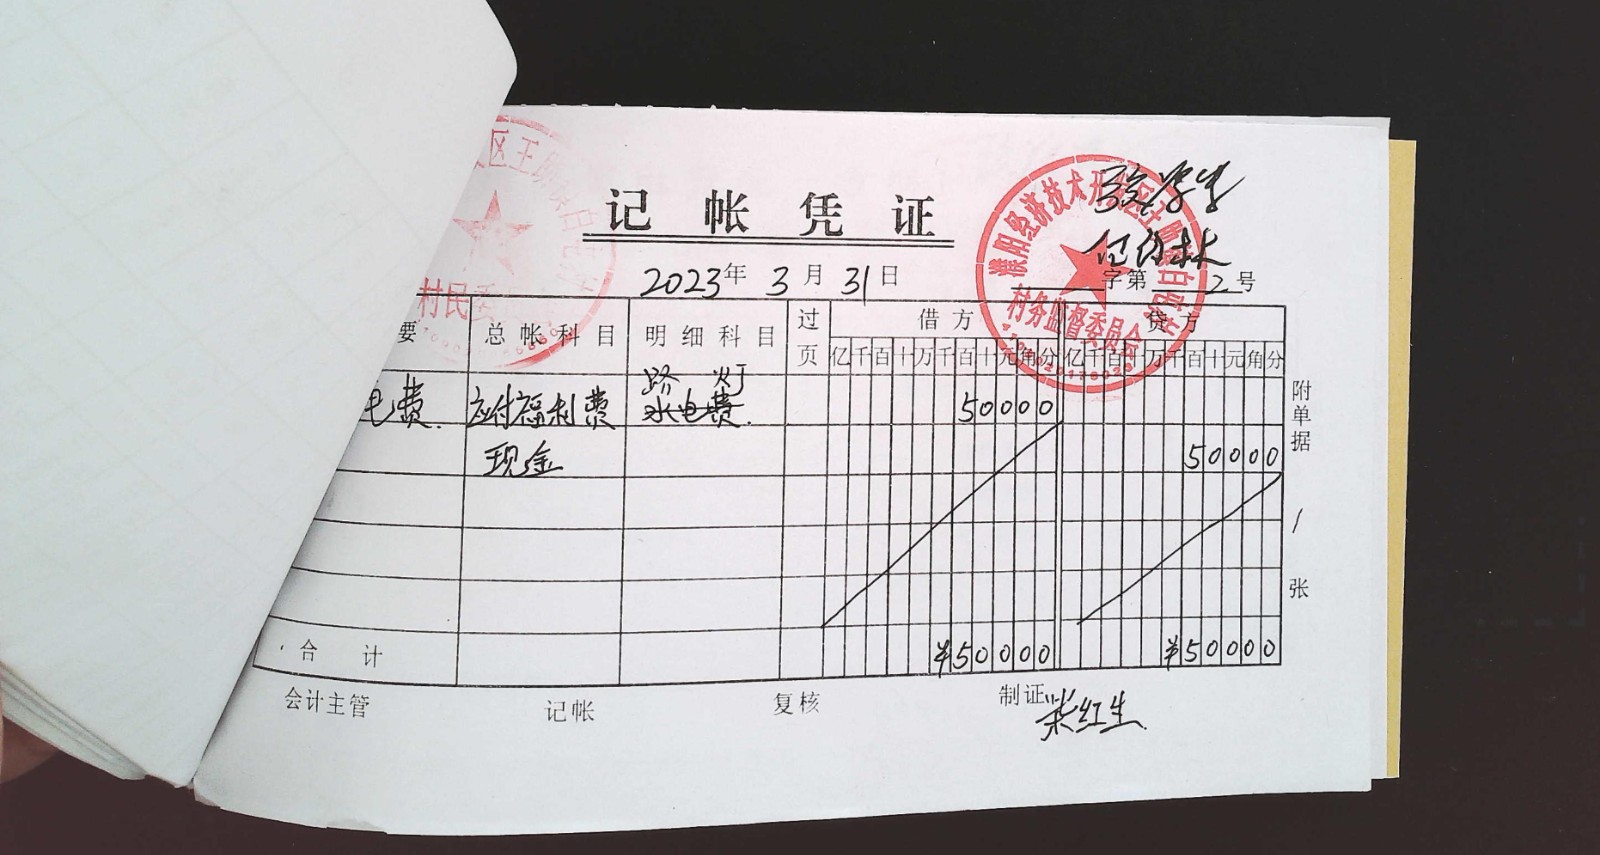 记帐凭证
2023年3月31日
字第2号
濮阳经济技术开发区王助镇白
村务监督委员会
区王助镇白
村民委员会
要 总帐科目 明细科目 过页 借方 贷方
亿千百十万千百十元角分 亿千百十万千百十元角分
路灯
电费. 应付福利费 水电费. 50000
现金 50000
附单据 1 张
合计 ¥50000 ¥50000
会计主管 记帐 复核 制证 红生